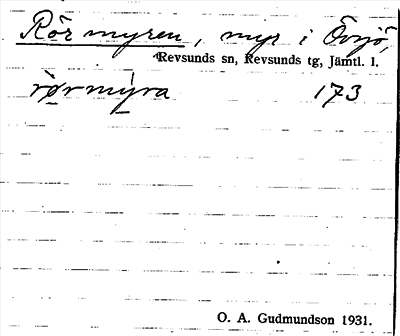 Rör myren, myr i Övsjö,
Revsunds sn, Revsunds tg, Jämtl. l.
rørmýra 173
O. A. Gudmundson 1931.